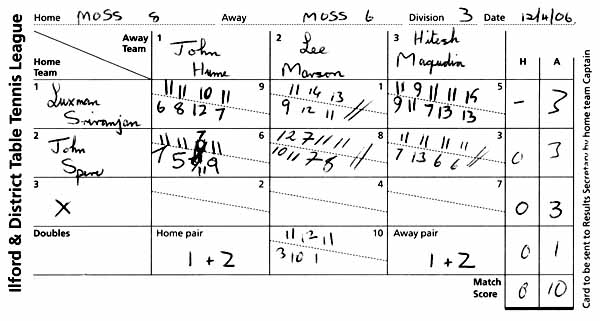 Ilford & District Table Tennis League
Home MOSS 8 Away MOSS 6 Division 3 Date 12/4/06.
Away Team
Home Team
1 John Hume
2 Lee Marson
3 Hitesh Magudia
H A
1 Luxman
9
11 11 10 11
6 8 12 7
1
11 14 13
9 12 11
5
11 9 11 11 15
9 11 7 13 13
- 3
2 John
6
8
12 7 11 11
10 11 7 8
3
11 11 11 11
7 13 6 6
0 3
3 X
2
4
7
0 3
Doubles
Home pair
1 + 2
10
11 12 11
3 10 1
Away pair
1 + 2
0 1
Match Score
0 10
Card to be sent to Results Secretary by home team Captain